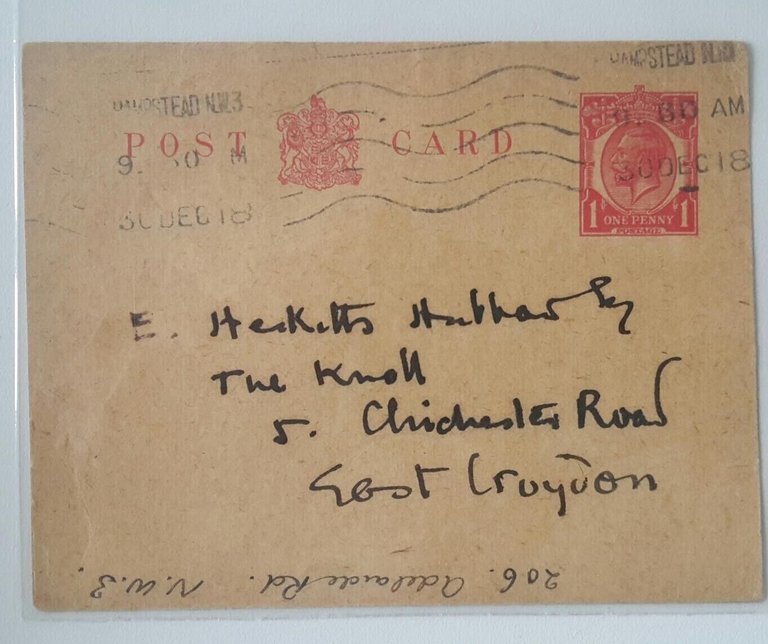 HAMPSTEAD N.W.3
9. 30 AM
30 DEC 18
POST CARD
HAMPSTEAD N.W.3
9. 30 AM
30 DEC 18
1 ONE PENNY 1
POSTAGE
E. Hesketh Hubbard Esq
The Knoll
5. Chichester Road
East Croydon
206. Adelaide Rd. N.W.3.